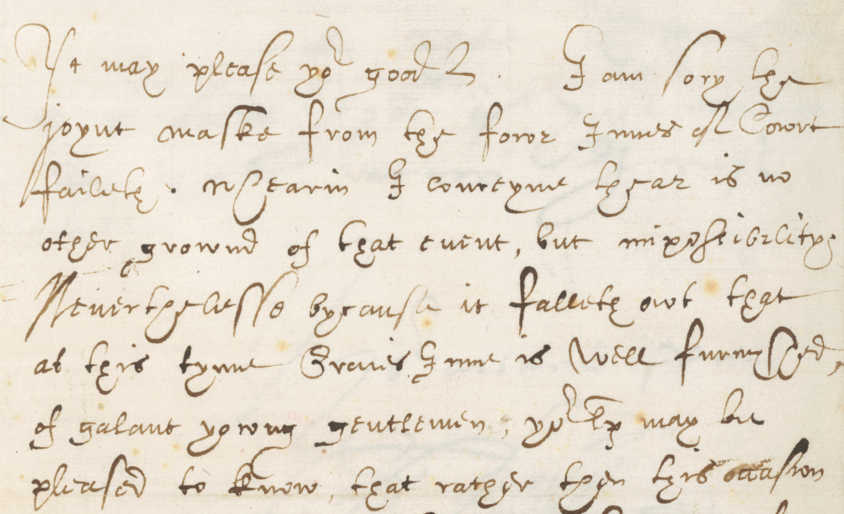 Yt may please yor good L. I am sory the
joynt maske from the fowr Innes of Cowrt
faileth. Whearin I conceyve thear is no
other grownd of that event, but impossibility.
Neverthelesse bycause it falleth owt that
at this tyme Graies Inne is well furnyshed,
of galant yowng gentlemen, yor Lp may be
pleased to know, that rather then this occasion